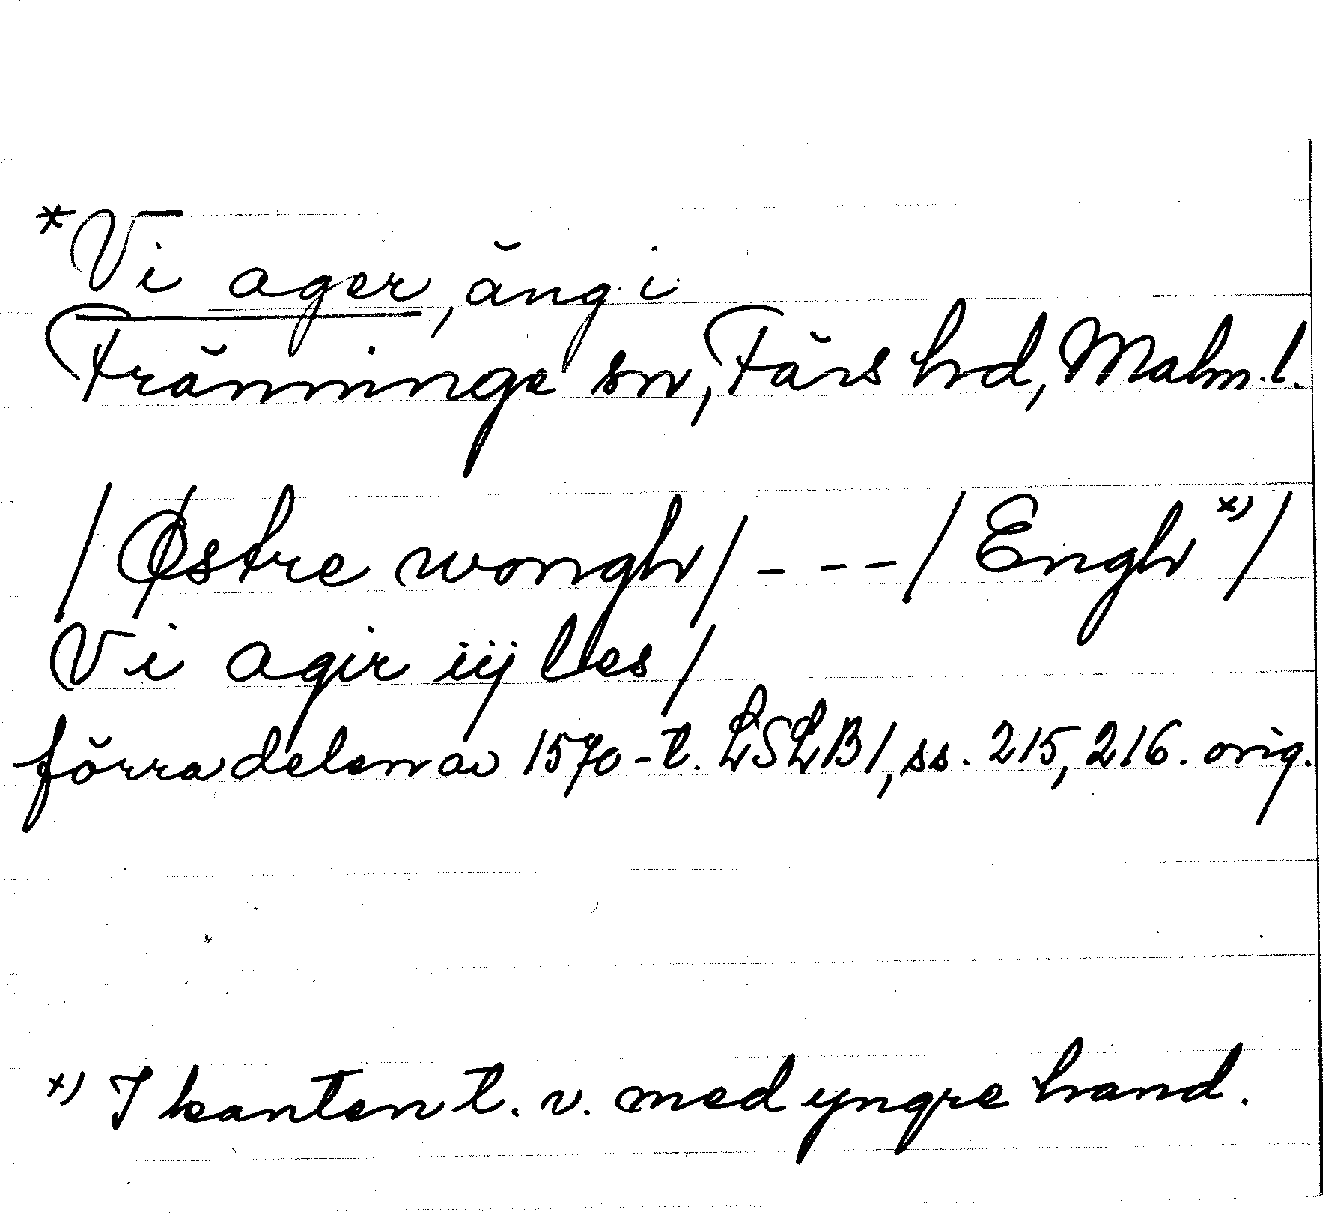 *Vi ager, äng i
Fränninge sn, Färs hd, Malm. l.
/ Østre wongh / - - - / Engh *) /
Vi agir iij les /
förra delen av 1570-t. LSLB 1, ss. 215, 216. orig.
*) I kanten t. v. med yngre hand.